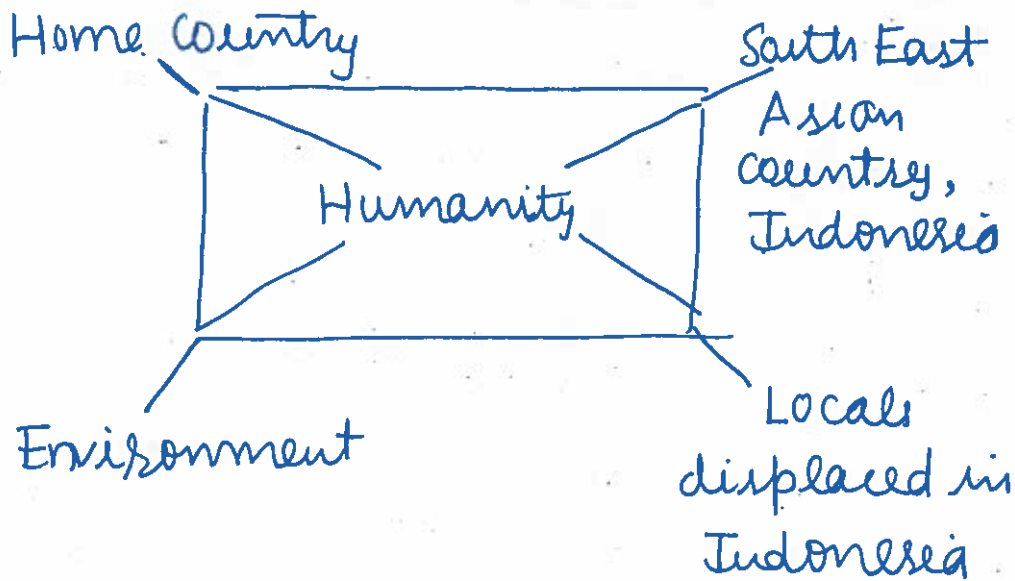 Home Country
South East
Asian
Country,
Indonesia
Humanity
Environment
Locals
displaced in
Indonesia.